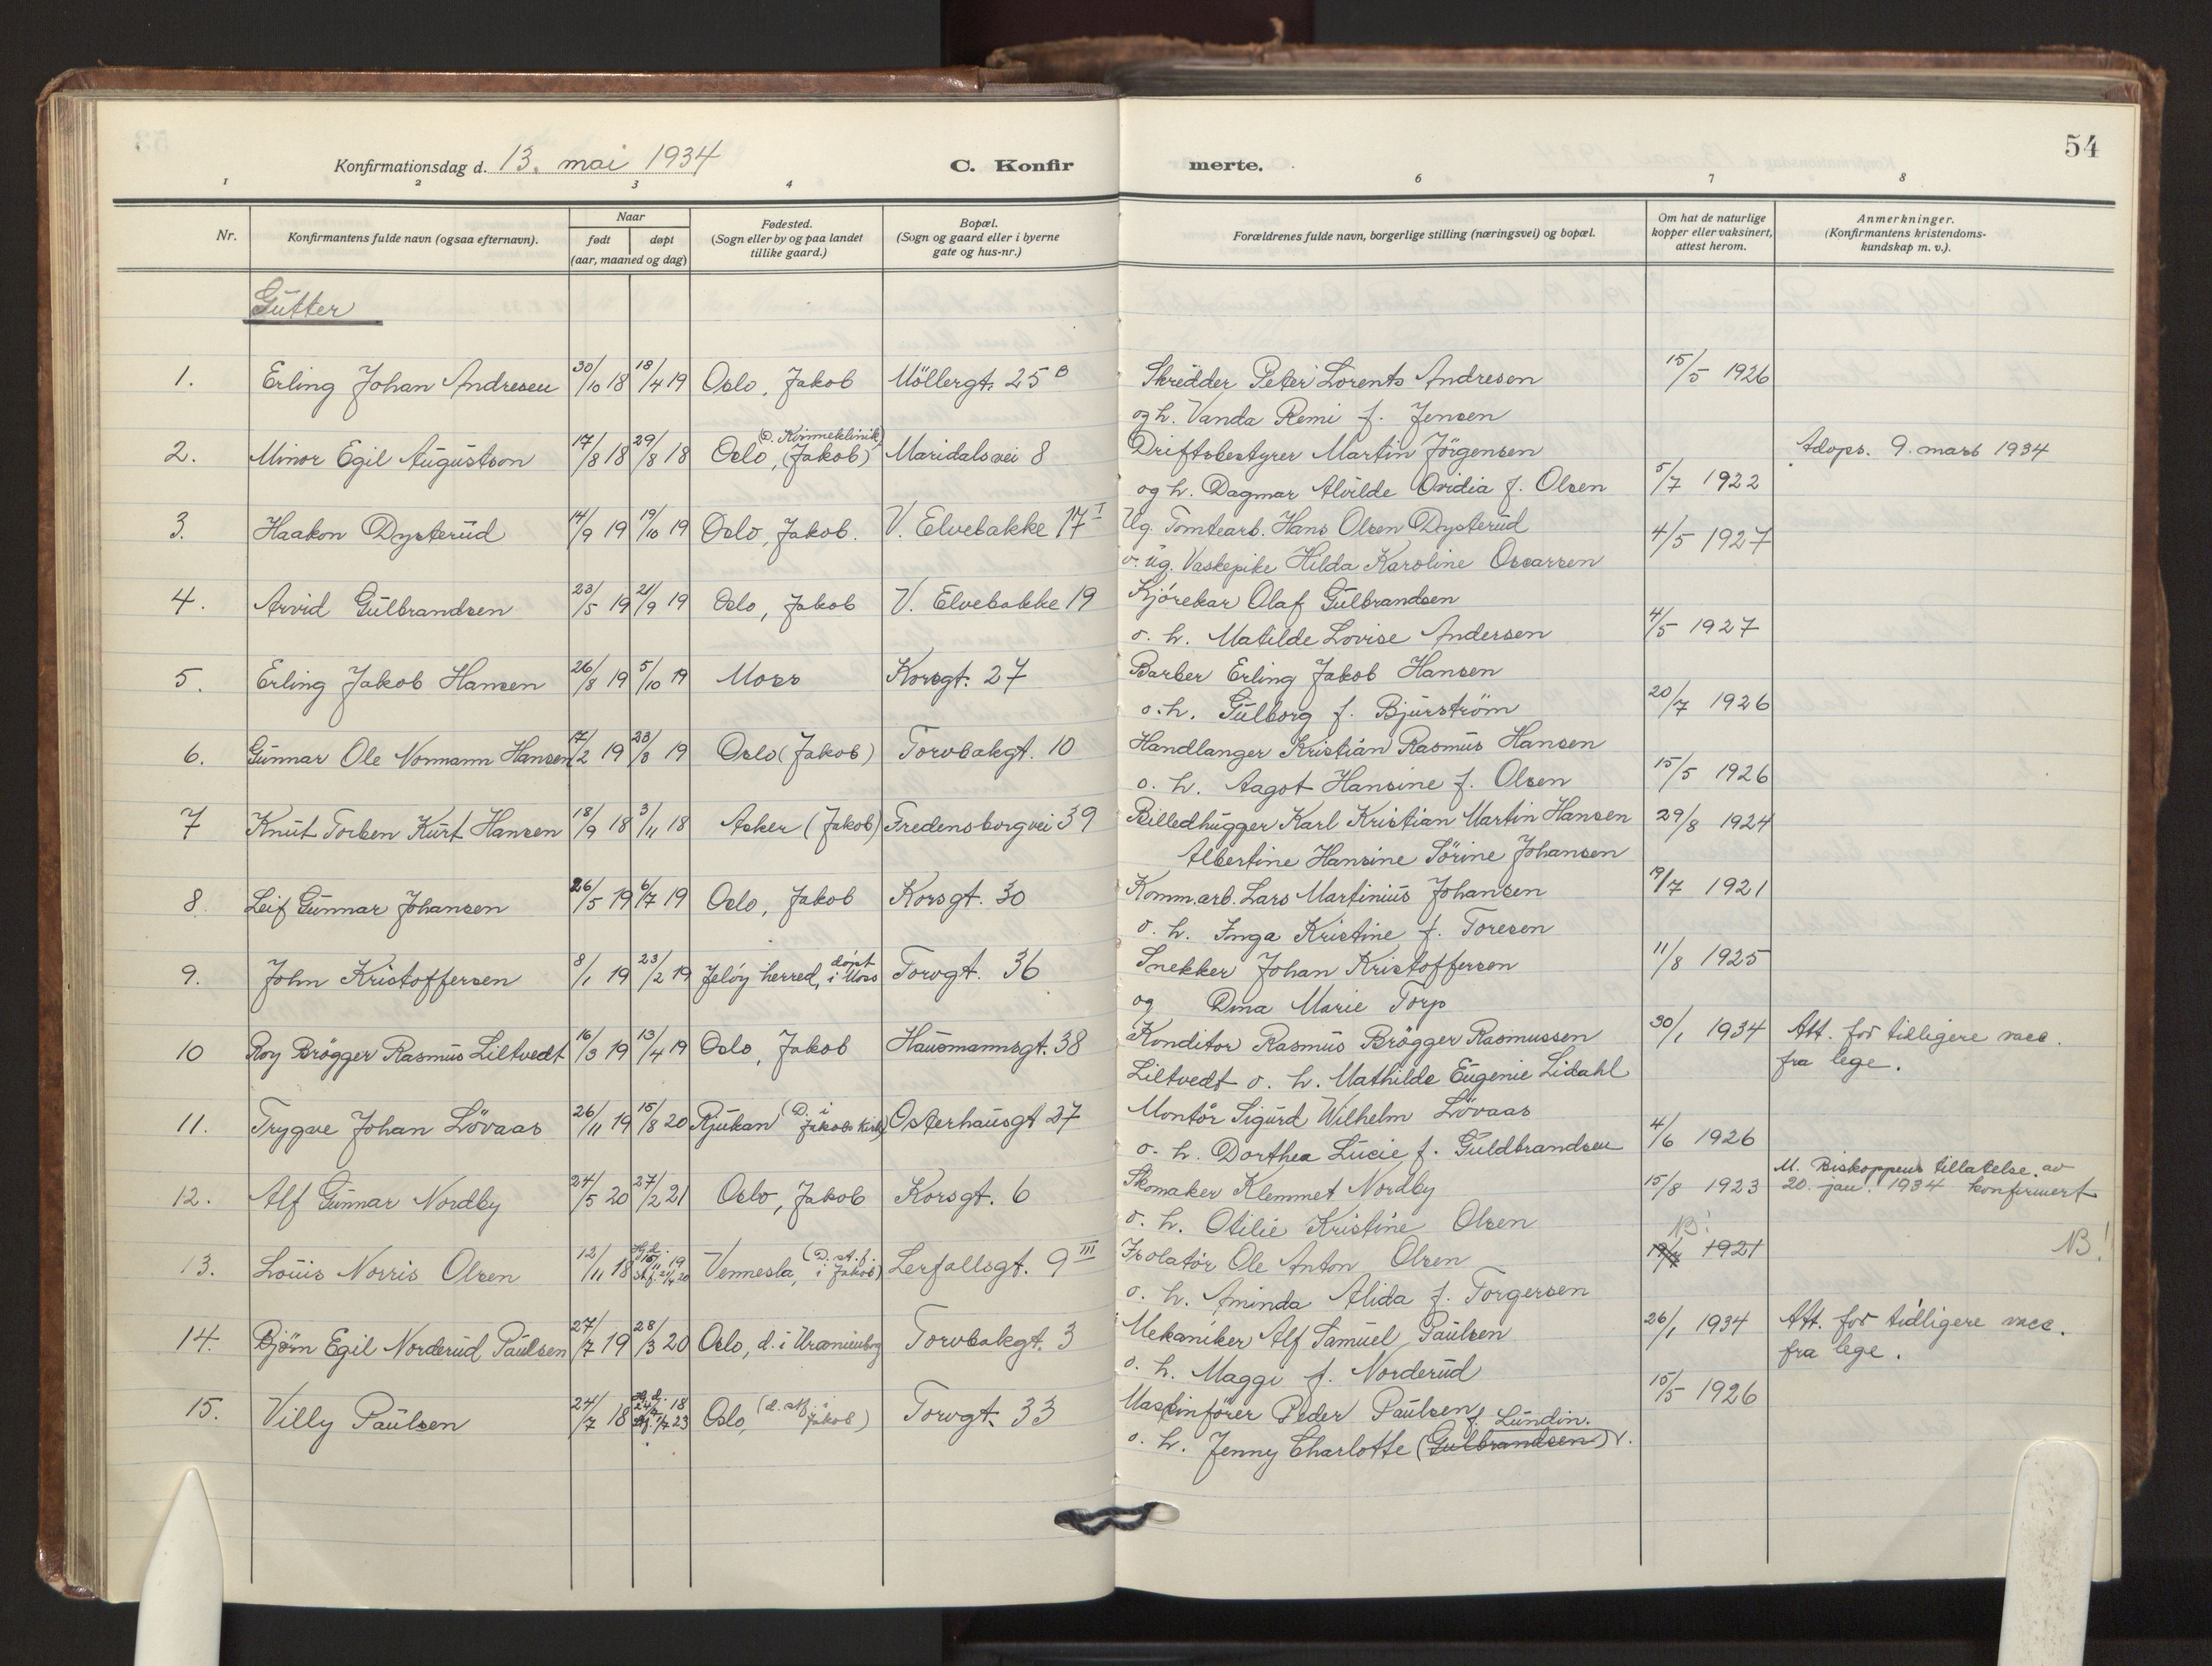 54
Konfirmationsdag d. 13. mai 1934 C. Konfir merte.
1 2 3 4 6 7 8
Nr. Konfirmantens fulde navn (ogsaa efternavn). Naar født døpt (aar, maaned og dag) Fødested. (Sogn eller by og paa landet tillike gaard.) Bopæl. (Sogn og gaard eller i byerne gate og hus-nr.) Forældrenes fulde navn, borgerlige stilling (næringsvei) og bopæl. Om hat de naturlige kopper eller vaksinert, attest herom. Anmerkninger. (Konfirmantens kristendoms-kundskap m. v.).
Gutter
1. Erling Johan Andresen 30/10 18 18/4 19 Oslo, Jakob Möllergt. 25 B Skredder Peter Lorents Andresen 15/5 1926
og h. Vanda Remi f. Jensen
2. Minor Egil Augustson 17/8 18 29/8 18 Oslo, (Jakob) (D. Kvinneklinik) Maridalsvei 8 Driftsbestyrer Martin Jörgensen Adops. 9. mars 1934
og h. Dagmar Alvilde Ovidia f. Olsen 5/7 1922
3. Haakon Dysterud 14/9 19 19/10 19 Oslo, Jakob. V. Elvebakke 17 I Ug. Tomtearb. Hans Olsen Dysterud 4/5 1927
o. ug. Vaskepike Hilda Karoline Oscarsen
4. Arvid Gulbrandsen 23/5 19 21/9 19 Oslo, Jakob V. Elvebakke 19 Kjørekar Olaf Gulbrandsen
o. h. Matilde Lovise Andersen 4/5 1927
5. Erling Jakob Hansen 26/8 19 5/10 19 Moss Korsgt. 27 Barber Erling Jakob Hansen
o. h. Gulborg f. Bjurström 20/7 1926
6. Gunnar Ole Normann Hansen 17/2 19 23/3 19 Oslo (Jakob) Torvbakgt. 10 Handlanger Kristian Rasmus Hansen
o. h. Aagot Hansine f. Olsen 15/5 1926
7 Knut Torben Kurt Hansen 18/9 18 3/11 18 Asker (Jakob) Fredensborgvei 39 Billedhugger Karl Kristian Martin Hansen 29/8 1924
Albertine Hansine Sörine Johansen
8 Leif Gunnar Johansen 26/5 19 6/7 19 Oslo, Jakob Korsgt. 30 Komm.arb. Lars Martinius Johansen 19/7 1921
o. h. Inga Kristine f. Toresen
9. John Kristoffersen 8/1 19 23/2 19 Jeløy herred, døpt i Moss Torvgt. 36 Snekker Johan Kristoffersen 11/8 1925
og Dina Marie Torp
10 Roy Brögger Rasmus Liltvedt 16/3 19 13/4 19 Oslo, Jakob Hausmannsgt. 38 Konditor Rasmus Brögger Rasmussen 30/1 1934 Att. for tidligere vacc.
Liltvedt o. h. Mathilde Eugenie Lidahl fra lege.
11. Trygve Johan Lövaas 26/11 19 15/8 20 Rjukan (D. i Jakobs kirke) Osterhausgt 27 Montör Sigurd Wilhelm Lövaas
o. h. Dorthea Lucie f. Guldbrandsen 4/6 1926
12. Alf Gunnar Nordby 24/5 20 27/2 21 Oslo, Jakob Korsgt. 6 Skomaker Klemmet Nordby 15/8 1923 M. Biskoppens tillatelse av 20. jan. 1934 konfirmert
o. h. Otilie Kristine Olsen NB!
13. Louis Norris Olsen 12/11 18 Hj.d. 15/11 19 st.f. 21/4 20 Vennesla, (D. st. f. i Jakob) Lerfallsgt. 9 III Isolatør Ole Anton Olsen 19/7 1921 NB!
o. h. Aminda Alida f. Torgersen
14. Bjørn Egil Norderud Paulsen 27/7 19 28/3 20 Oslo, d. i Uranienborg Torvbakgt. 3 Mekaniker Alf Samuel Paulsen 26/1 1934 Att. for tidligere vacc.
o. h. Maggi f. Norderud fra lege.
15. Villy Paulsen 24/7 18 Hj.d. 24/7 18 stf. 1/7 23 Oslo, (d. stf. i Jakob) Torvgt. 33 Maskinfører Peder Paulsen 15/5 1926
o. h. Jenny Charlotte (Gulbrandsen) f. Lundin.